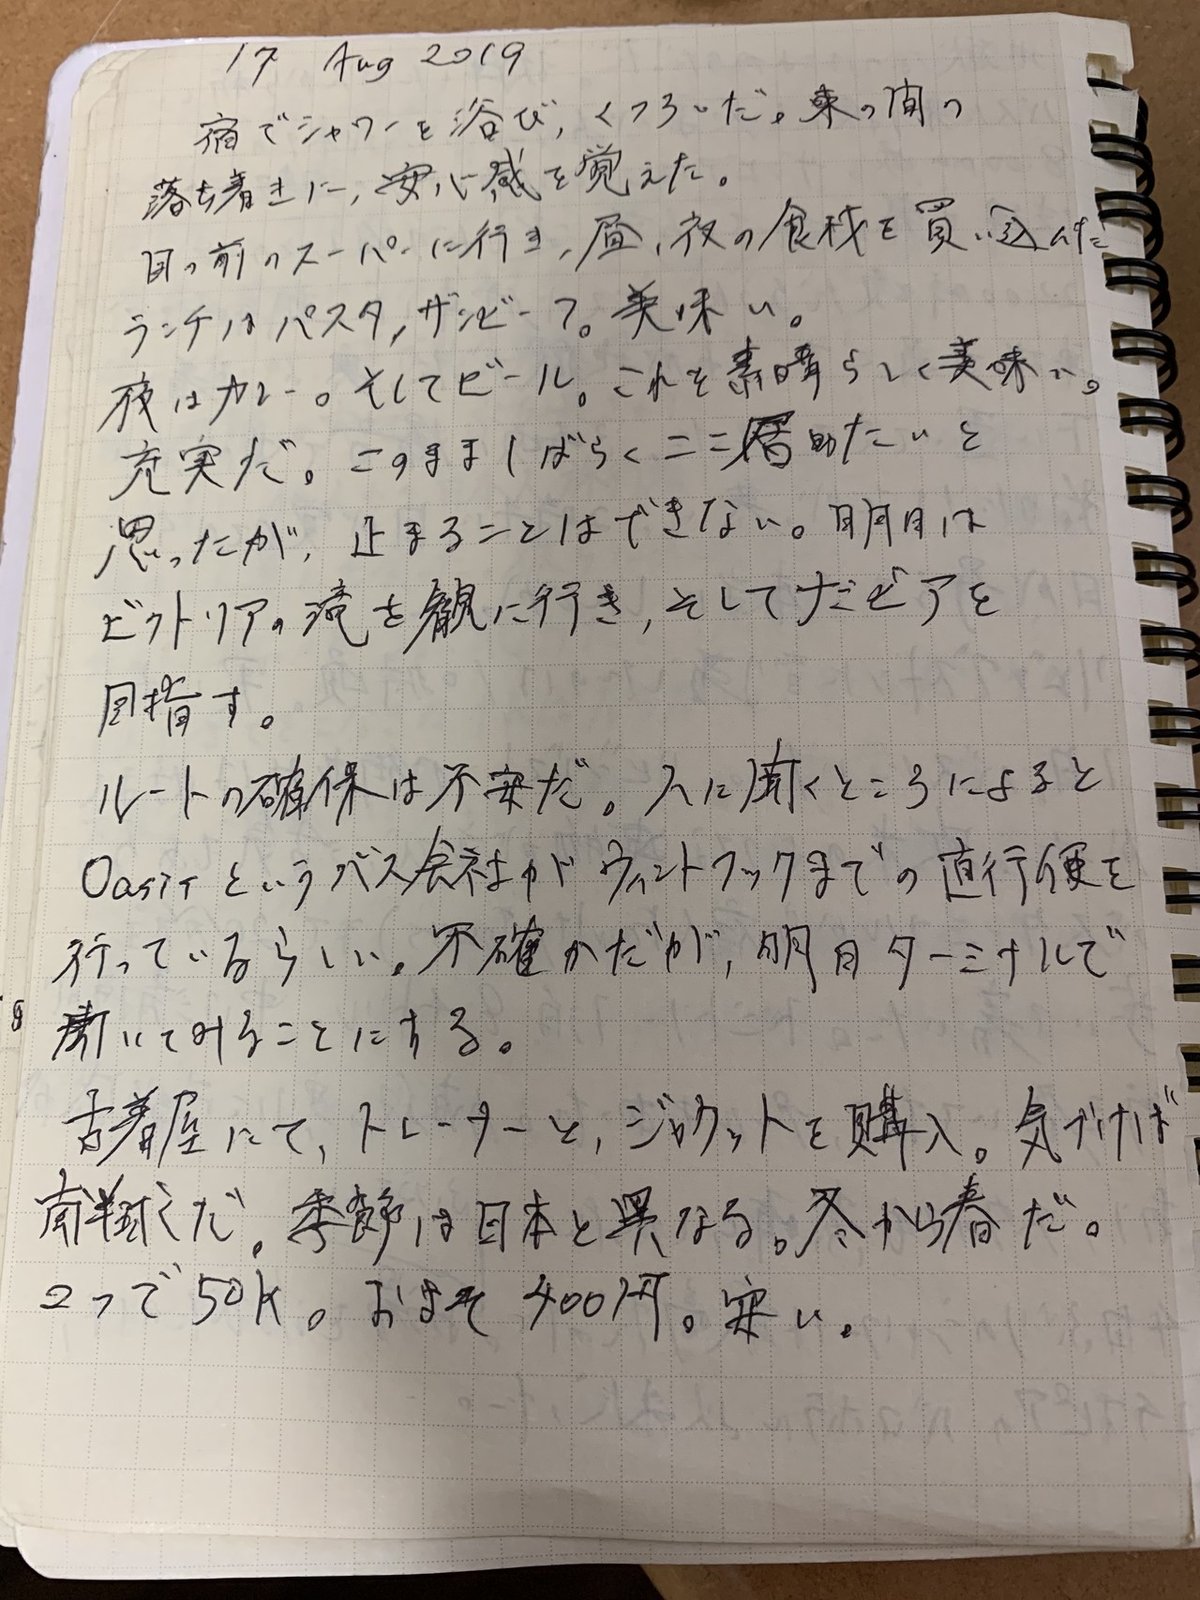 17 Aug 2019
宿でシャワーを浴び、くつろいだ。束の間の
落ち着きに、安心感を覚えた。
目の前のスーパーに行き、昼、夜の食材を買い込んだ
ランチはパスタ、ザンビーフ。美味い。
夜はカレー。そしてビール。これも素晴らしく美味い。
充実だ。このまましばらくここに たいと
思ったが、止まることはできない。明日は
ビクトリアの滝を観に行き、そしてナミビアを
目指す。
ルートの確保は不安だ。人に聞くところによると
Oasisというバス会社がウィントフックまでの直行便を
行っているらしい。不確かだが、明日ターミナルで
聞いてみることにする。
古着屋にて、トレーナーと、ジャケットを購入。気づけば
南半球だ。季節は日本と異なる。冬から春だ。
2つで50K。およそ400円。安い。